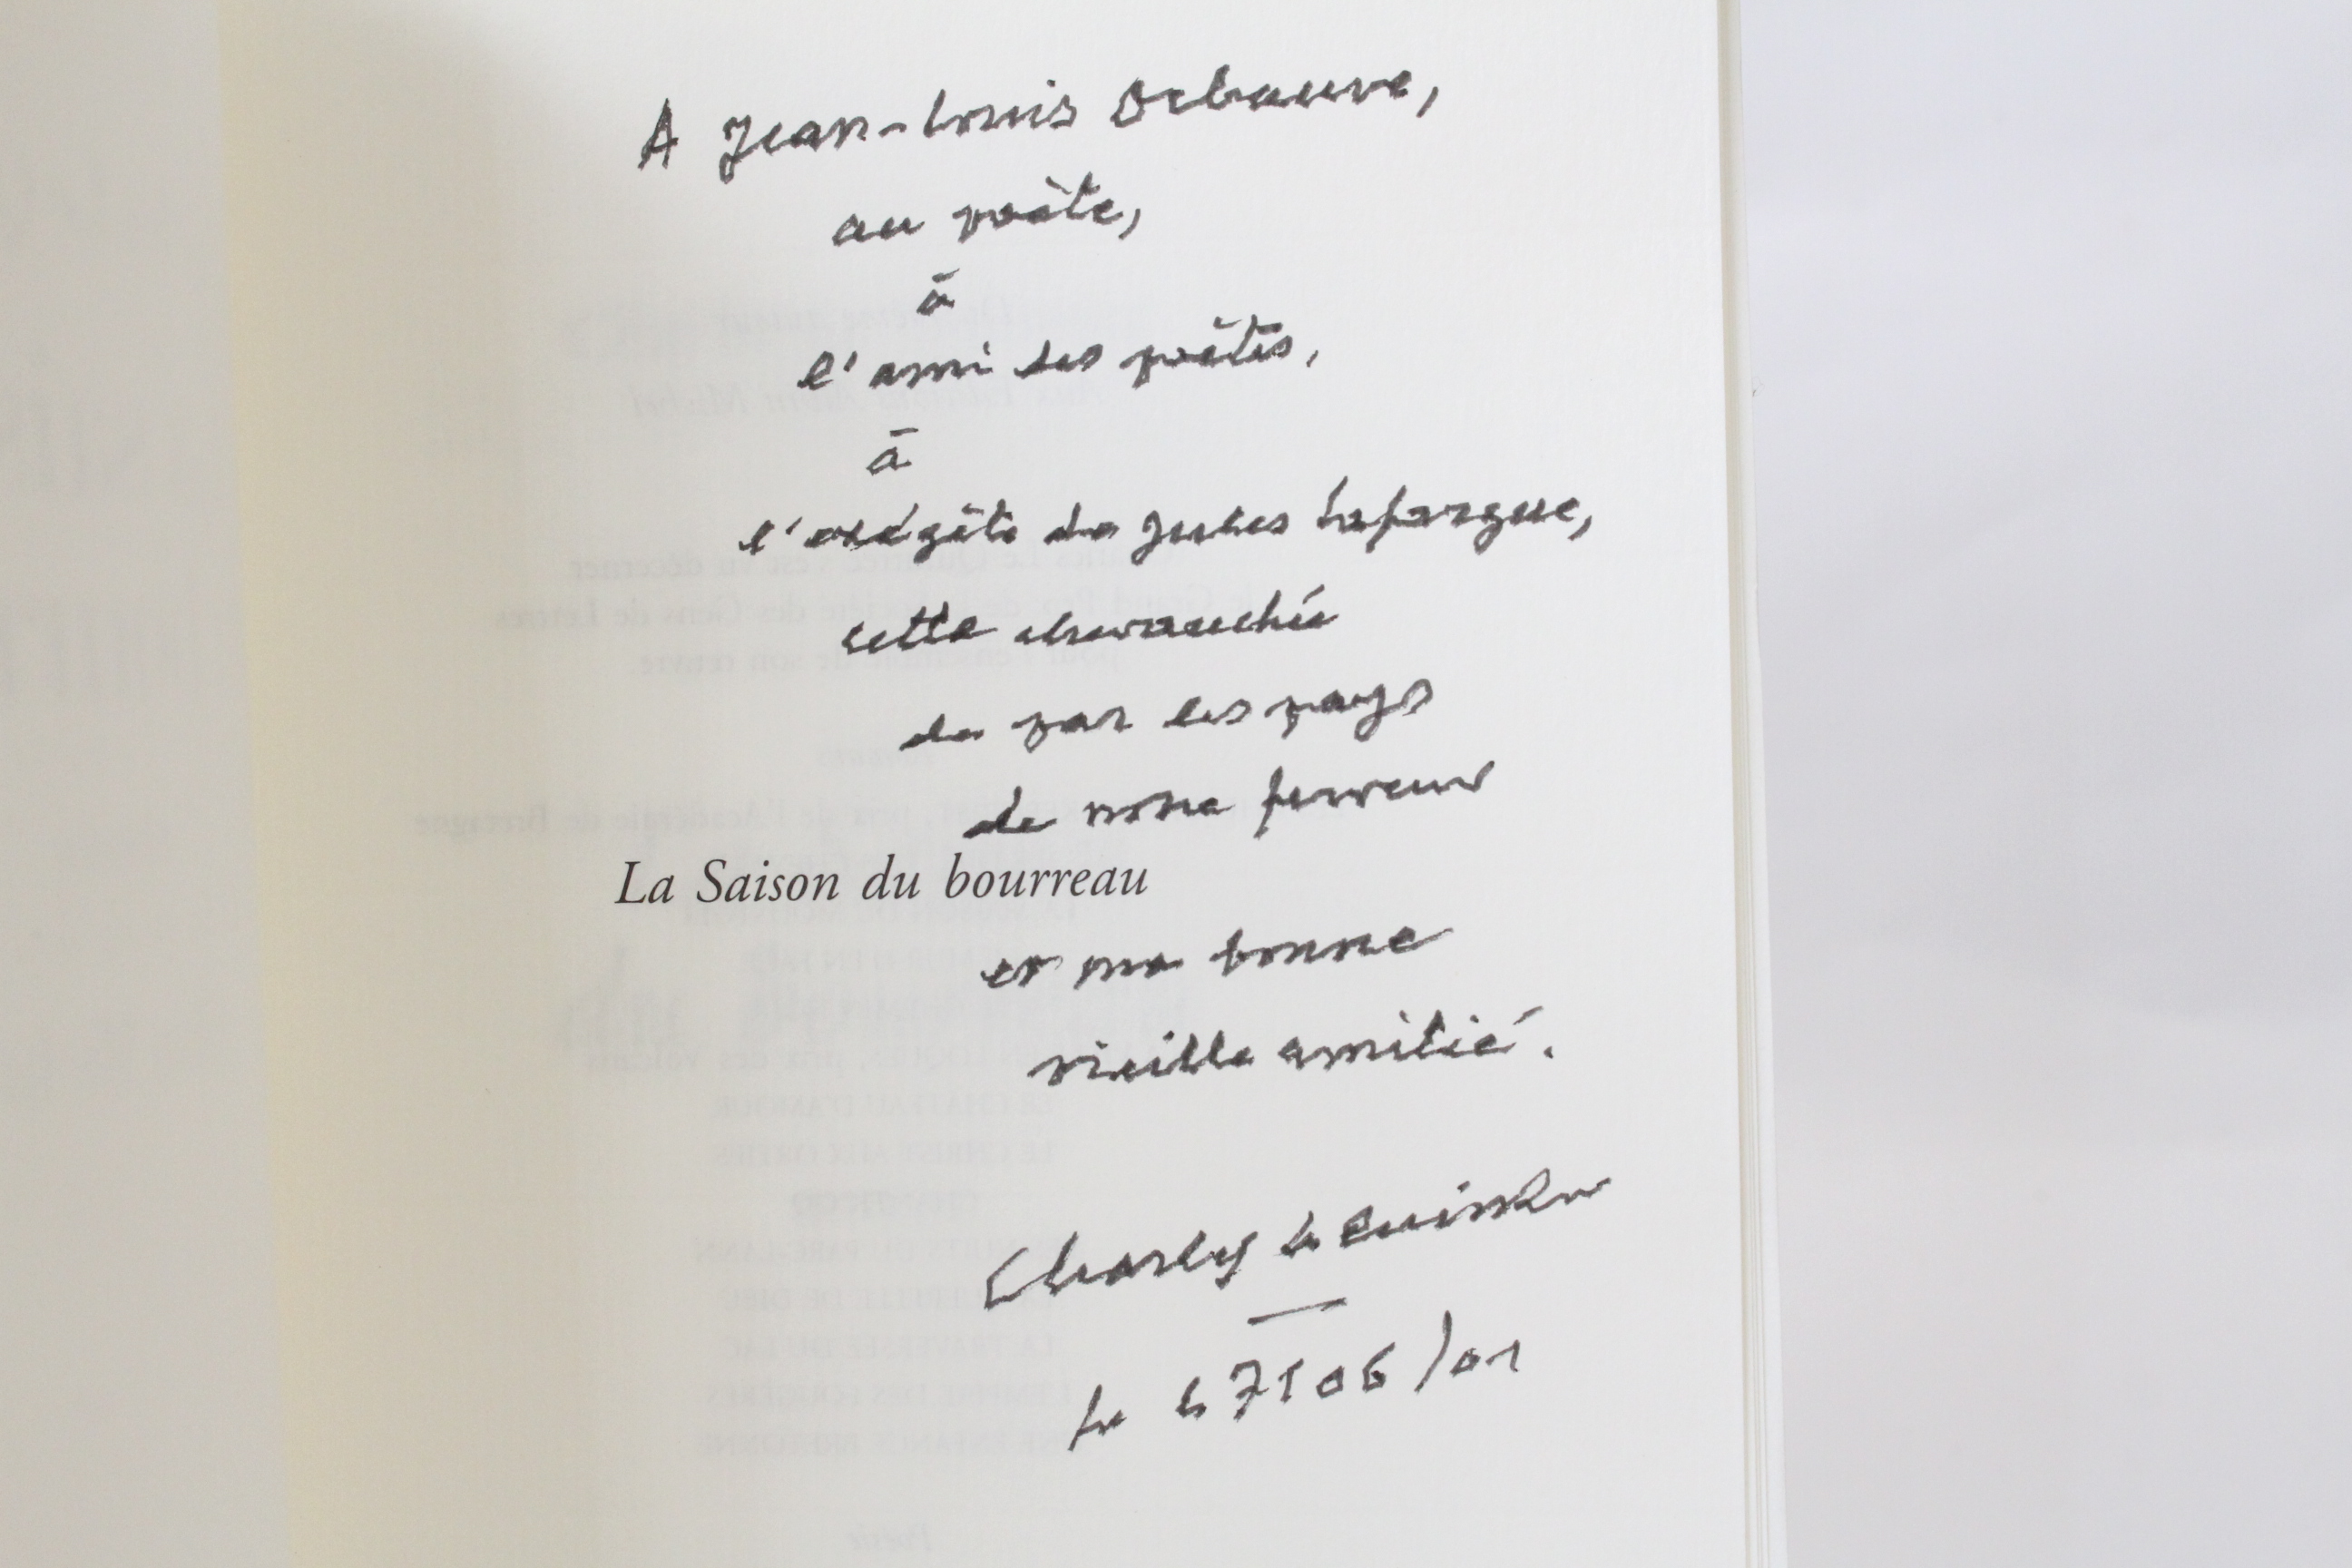 A Jean-Louis Debauve,
au poète,
à
l'ami des poètes,
à
l'exégète de Jules Laforgue,
cette chevauchée
de par les pays
de notre ferveur
La Saison du bourreau
et ma bonne
vieille amitié.
Charles Le Quintrec
le 7/06/01